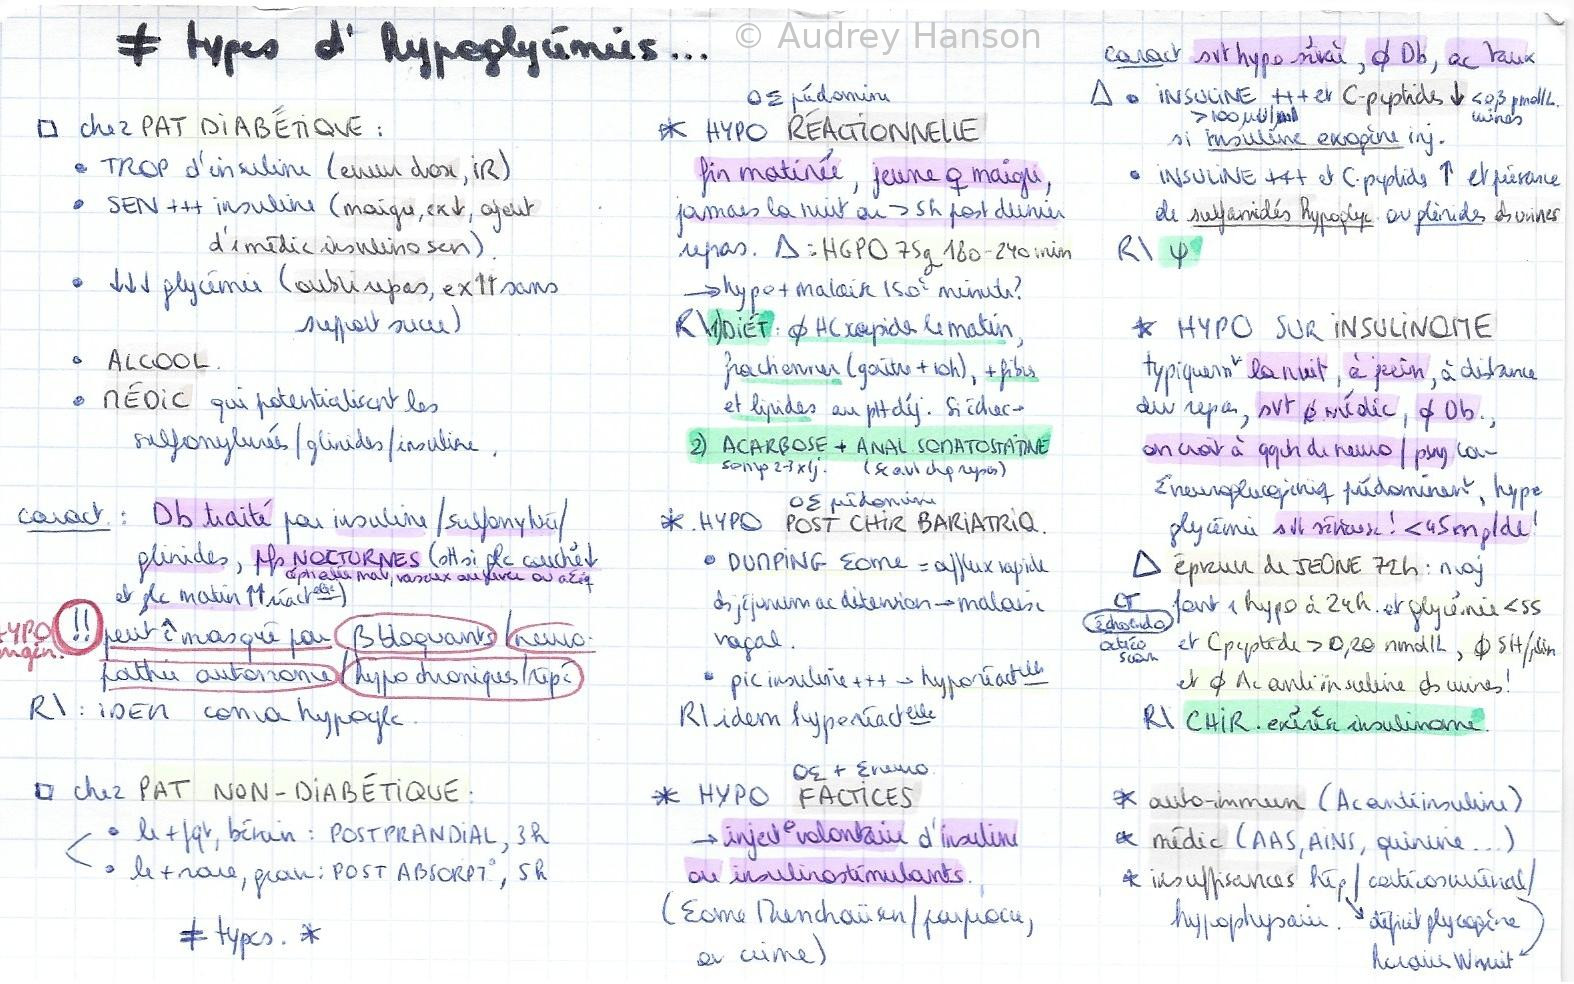 © Audrey Hanson
≠ types d'hypoglycémies...
□ chez PAT DIABÉTIQUE :
• TROP d'insuline (erreur dose, iR)
• SEN +++ insuline (maigre, ex↓, ajout
d'1 médic insulinosen).
• ↓↓↓ glycémie (oubli repas, ex↑↑ sans
support sucre)
• ALCOOL.
• MÉDIC qui potentialisent les
sulfonylurés/glinides/insuline.
caract : Db traité par insuline/sulfonylurée/
glinides, NOCTURNES (sH si glc couché↓
et glc matin ↑↑ réact)
HYPO
!! peut ê masqué par β bloquants/neuro-
pathie autonome/hypo chroniques/répé
R\ : iDEM coma hypoglc.
□ chez PAT NON-DIABÉTIQUE :
• le + fqt, bénin : POSTPRANDIAL, 3h
• le + rare, grave : POST ABSORPT°, 5h
≠ types. *
OΣ prédomine
* HYPO RÉACTIONNELLE
fin matinée, jeune ♀ maigre,
jamais la nuit ou > 5h post dernier
repas. Δ : HGPO 75g 180-240 min
→ hypo + malaise 150e minute?
R\ 1) DIÉT : ∅ HC rapides le matin,
fractionner (goûter + 10h), + fibres
et lipides au ptdéj. Si échec→
2) ACARBOSE + ANAL SOMATOSTATINE
50mg 2-3x/j. (sc avt chq repas)
OΣ prédomine
* HYPO POST CHIR BARIATRIQ.
• DUMPING Σome = afflux rapide
ds jéjunum ac distension → malaise
vagal.
• pic insuline +++ → hyporéactelle
R\ idem hyporéactelle
OΣ + Σneuro
* HYPO FACTICES
→ inject° volontaire d'insuline
ou insulinostimulants.
(Σome Munchaüsen/par procu,
ou crime)
caract svt hypo sévère, ∅ Db, ac taux
Δ • INSULINE +++ et C-peptides ↓ <0,3 pmol/L.
si insuline exogène inj.
• INSULINE +++ et C-peptids ↑ et présence
de sulfamidés hypoglyc ou glinides ds urines
R\ ψ
* HYPO SUR INSULINOME
typiquemt la nuit, à jeun, à distance
du repas, svt ∅ médic, ∅ Db.,
on croit à qqch de neuro/psy car
Σneuroglucopéniq prédominent, hypo
glycémie svt sérieuse! <45mg/dL!
Δ épreuve de JEÛNE 72h :
font 1 hypo à 24h et glycémie <55
CT
échoendo
et Cpeptide > 0,20 nmol/L, ∅ SH/glin
et ∅ Ac antiinsuline ds urines!
R\ CHIR. exérèse insulinome.
* auto-immun (Ac antiinsuline)
* médic (AAS, AINS, quinine...)
* insuffisances hép/corticosurrénal/
hypophysaire. déficit glycogène